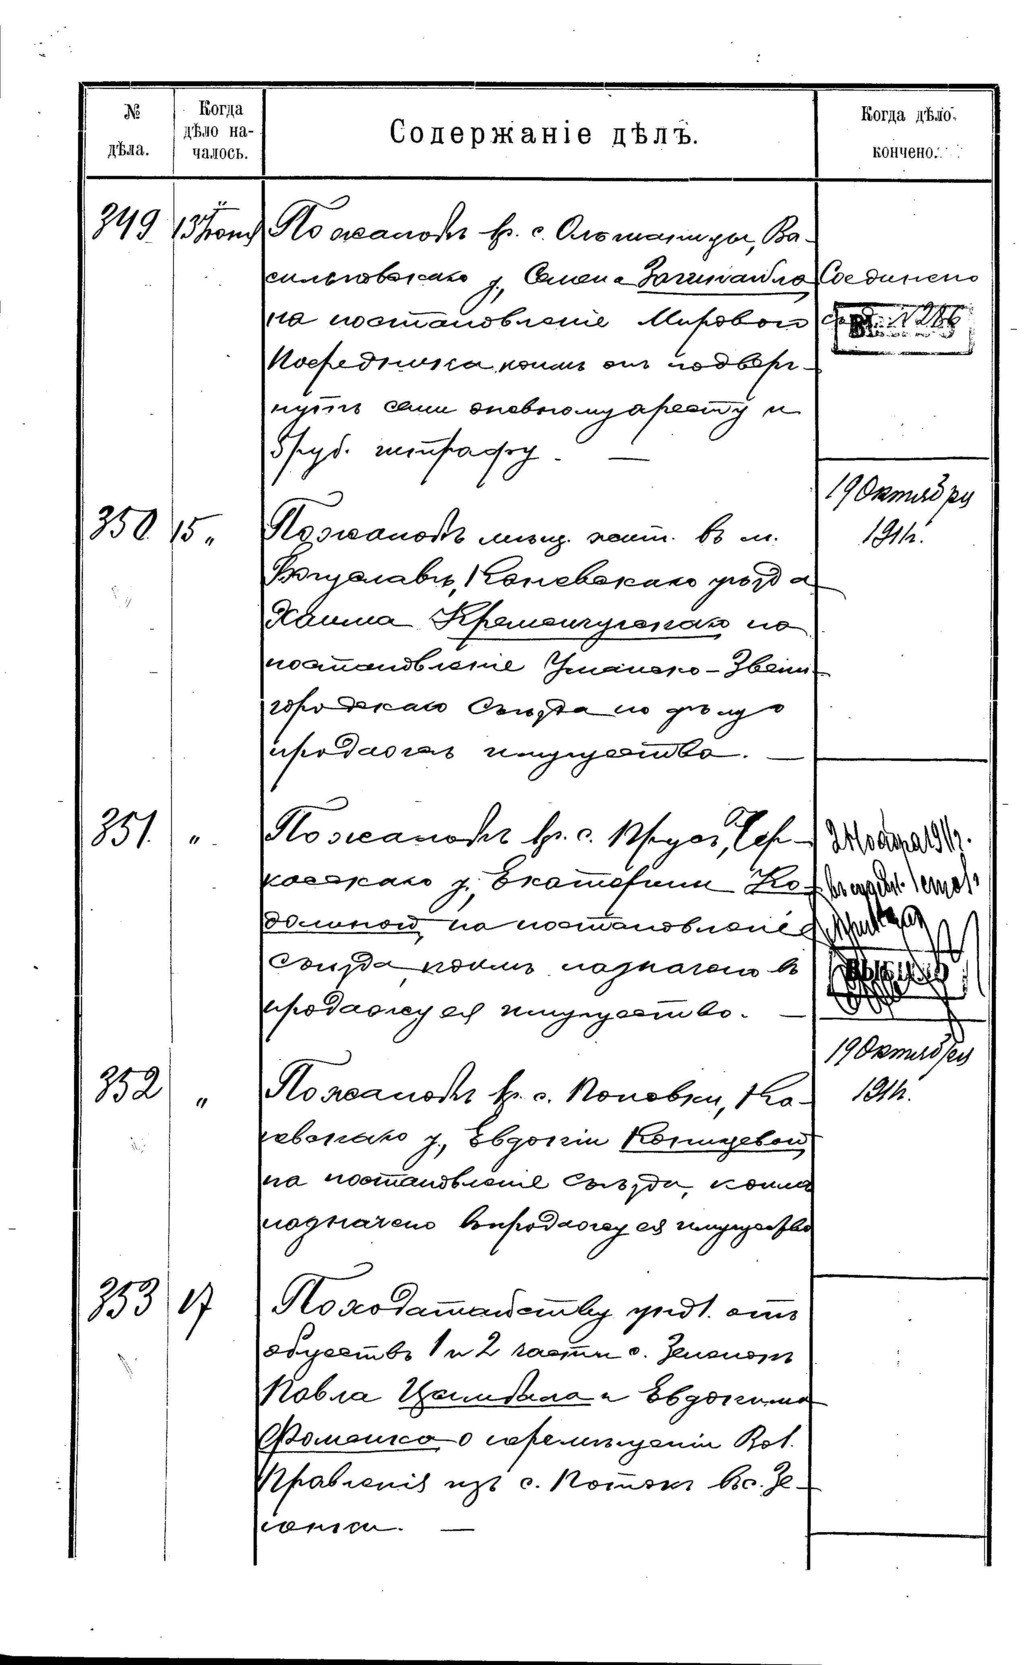 № дѣла.
Когда дѣло началось.
Содержаніе дѣлъ.
Когда дѣло кончено.
349 13 Іюня По жалобѣ кр. с. Ольшаницы, Ва-
сильковскаго у., Семена Загинайло Соединено
на постановленіе Мирового съ д. №286
Посредника, коимъ онъ подверг-
нутъ семи дневному аресту и
3 руб. штрафу. —
19 Октября
1911г.
350. 15 „ По жалобѣ мѣщ. жит. въ м.
Богуславѣ, Каневскаго уѣзда
Хаима Кременчугскаго на
постановленіе Уманско-Звени-
городскаго Съѣзда по дѣлу о
продажѣ имущества. —
351. „ По жалобѣ кр. с. Прусъ, Чер-
касскаго у., Екатерины Ко-
долиной, на постановленіе
Съѣзда, коимъ назначено въ
продажу ея имущество. —
2 Ноября 1911г.
19 Октября
1911г.
352 „ По жалобѣ кр. с. Поповки, Ка-
невскаго у., Евдокіи
на постановленіе Съѣзда, коимъ
назначено въ продажу ея имущество
353 17 По ходатайству упол. отъ
обществъ 1 и 2 части с. Зеленекъ
Павла Цымбала и Евдокима
Фоменко о перемѣщеніи Вол.
Правленія изъ с. Потокъ въ с. Зе-
ленки. —